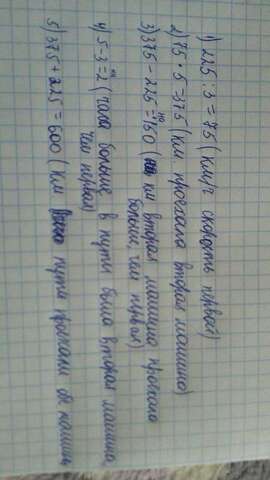 1) 225 : 3 = 75 (км/ч скорость первой)
2) 75 · 5 = 375 (км проехала вторая машина)
3) 375 - 225 = 150 (на км вторая машина проехала
больше, чем первая)
4) 5 - 3 = 2 (на часа больше в пути была вторая машина,
чем первая)
5) 375 + 225 = 600 (км пути проехали обе машины